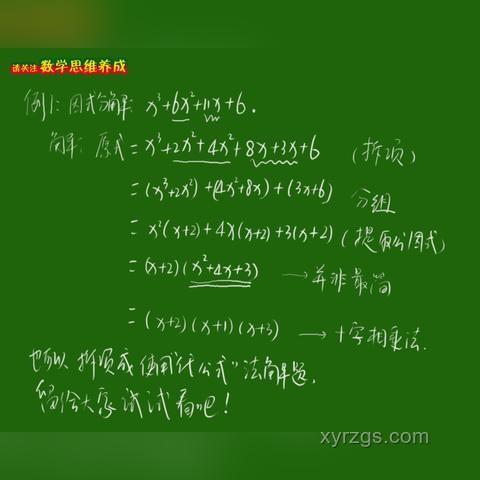 请关注 数学思维养成
例1: 因式分解: x³+6x²+11x+6.
解: 原式=x³+2x²+4x²+8x+3x+6 (拆项)
=(x³+2x²)+(4x²+8x)+(3x+6) 分组
=x²(x+2)+4x(x+2)+3(x+2) (提取公因式)
=(x+2)(x²+4x+3) → 并非最简
=(x+2)(x+1)(x+3) → 十字相乘法.
也可以 拆项成 使用"公式"法解题,
留给大家试试看吧!
xyrzgs.com